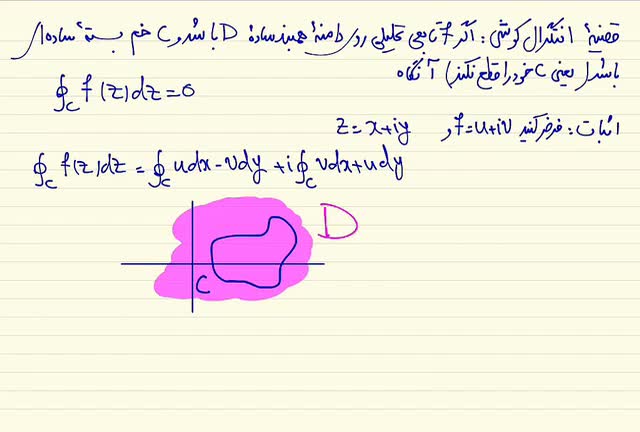 قضیهٔ انتگرال کوشی: اگر f تابعی تحلیلی روی دامنهٔ همبند سادهٔ D باشد و C خم بستهٔ ساده‌ای
باشد (یعنی C خود را قطع نکند) آنگاه
∮_C f(z)dz=0
اثبات: فرض کنید f=u+iv و z=x+iy
∮_C f(z)dz = ∮_C udx-vdy +i∮_C vdx+udy
D
C